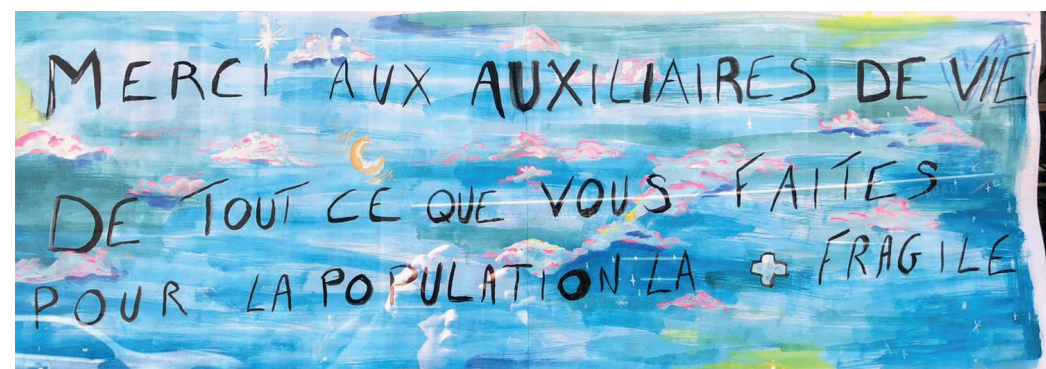 MERCI AUX AUXILIAIRES DE VIE
DE TOUT CE QUE VOUS FAITES
POUR LA POPULATION LA + FRAGILE